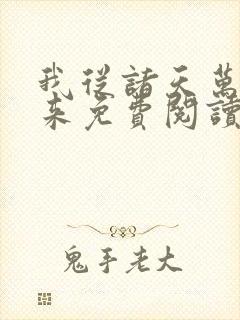 我從諸天萬
來免費閱讀
鬼手老大